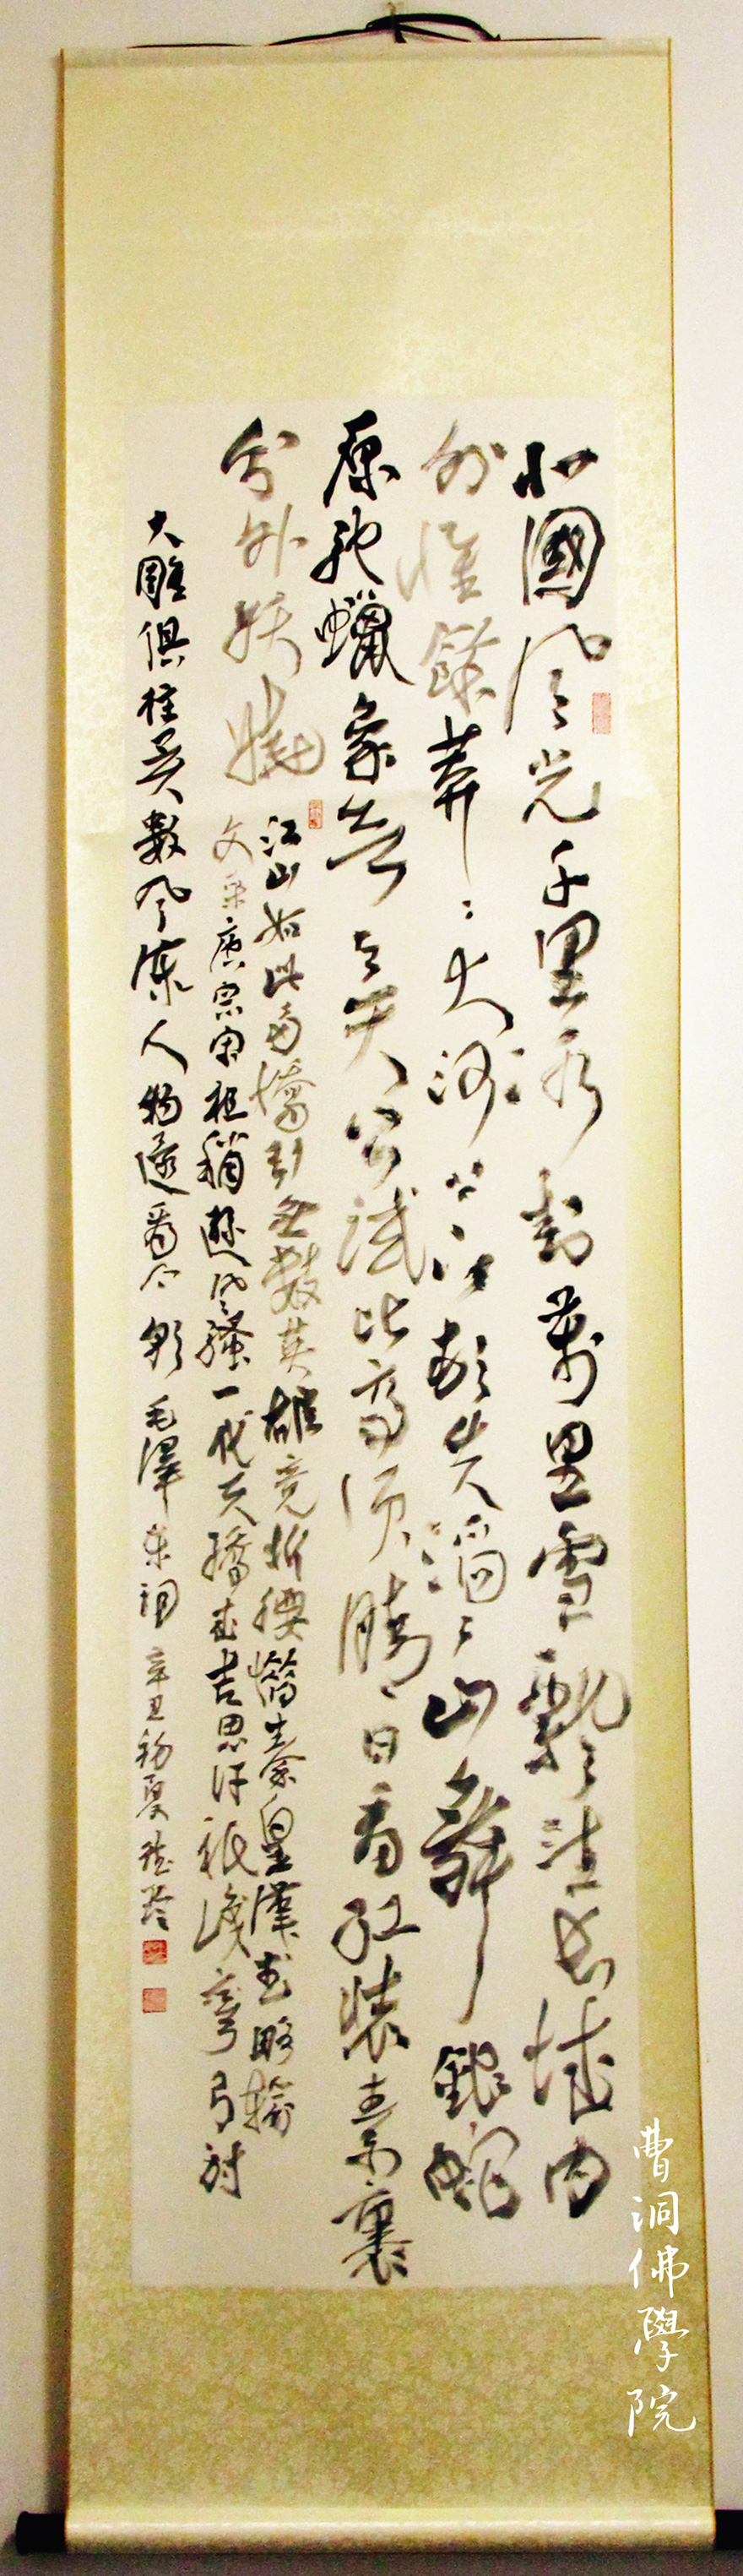 北國風光千里冰封萬里雪飄望長城內
外惟餘莽〻大河上下頓失滔〻山舞銀蛇
原馳蠟象欲与天公試比高須晴日看紅裝素裹
分外妖嬈
江山如此多嬌引無數英雄競折腰惜秦皇漢武略輸
文采唐宗宋祖稍遜風騷一代天驕成吉思汗祇識彎弓射
大雕俱往矣數風流人物還看今朝 毛澤東詞 辛丑初夏
曹洞佛學院